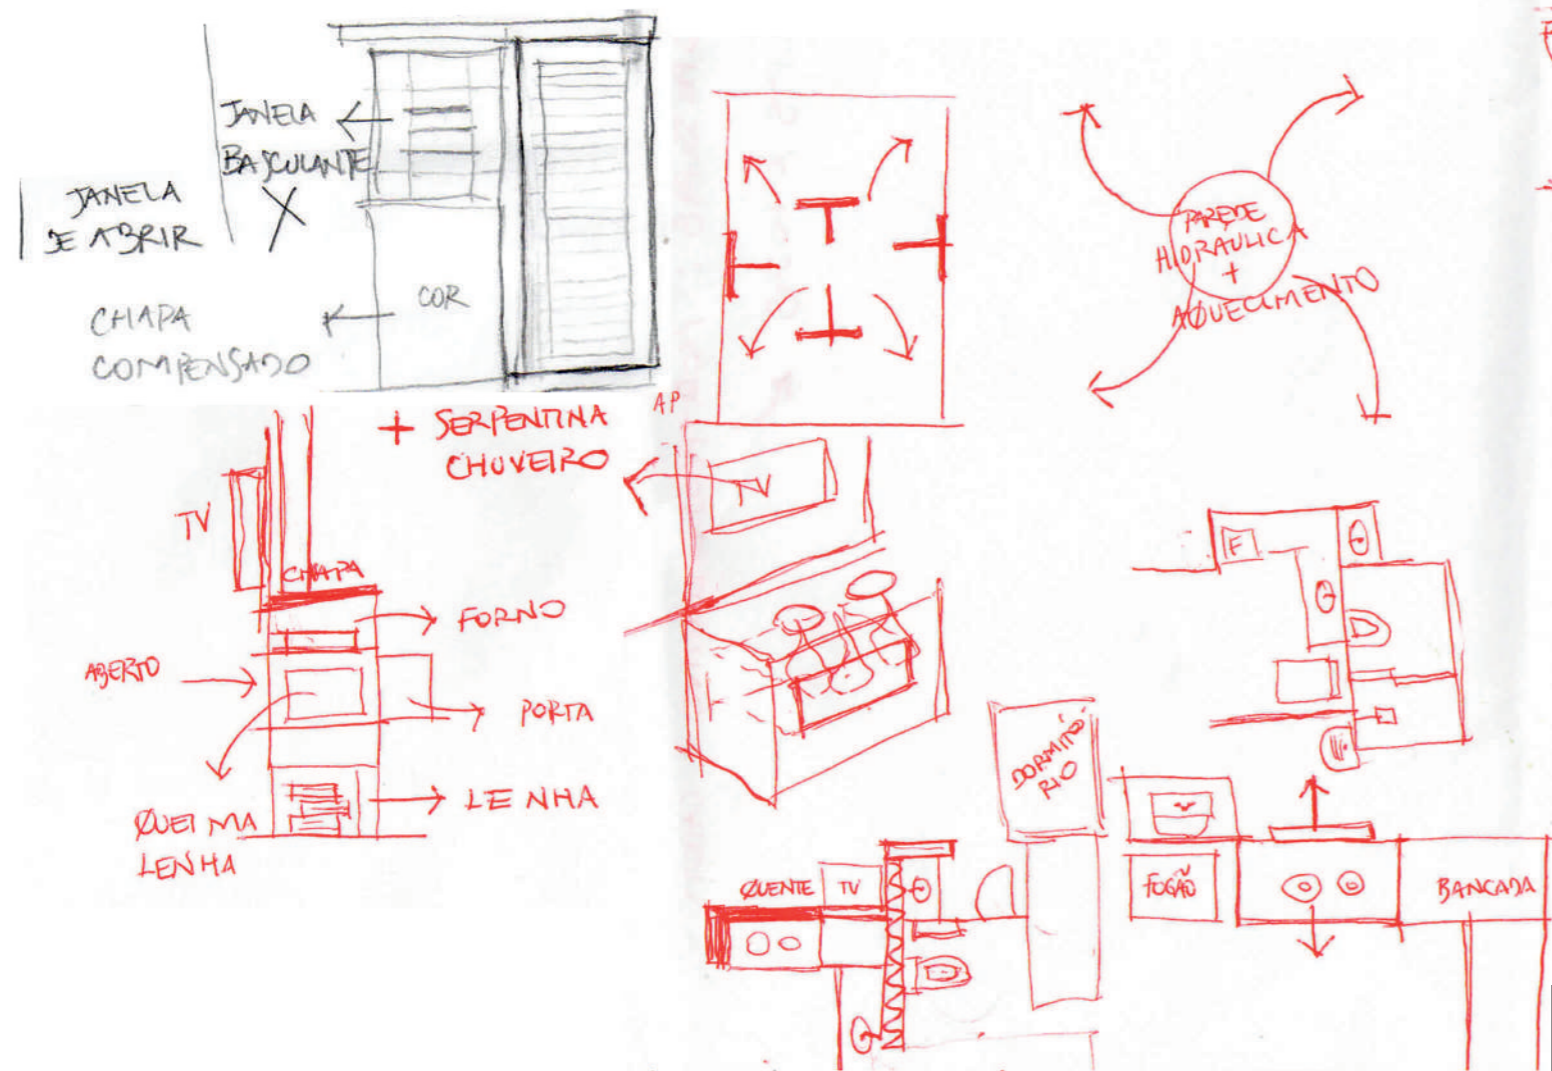 JANELA
BASCULANTE
X
JANELA
DE ABRIR
CHAPA
COMPENSADO
COR
+ SERPENTINA
CHUVEIRO
AP
TV
TV
CHAPA
FORNO
ABERTO
PORTA
QUEIMA
LENHA
LENHA
PAREDE
HIDRAULICA
+
AQUECIMENTO
F
DORMITÓ
RIO
QUENTE
TV
FOGÃO
BANCADA